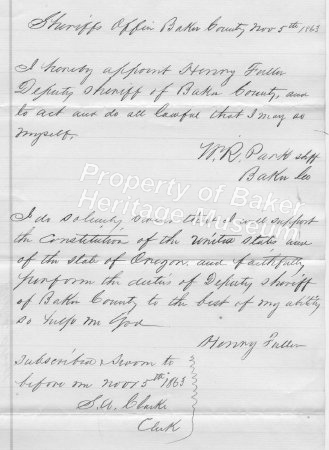 Sheriffs Office Baker County Nov 5th 1863
I hereby appoint Henry Fuller
Deputy sheriff of Baker County, and
to act and do all lawful that I may so
myself.
W. R. Park shff
Baker Co
Property of Baker
Heritage Museum
I do solemly swear that I will support
the Constitution of the United States and
of the State of Oregon and faithfully
perform the duties of Deputy sheriff
of Baker County to the best of my ability
so help me God
Henry Fuller
subscribed & sworn to
before me Nov 5th 1863
S. A. Clarke
Clerk